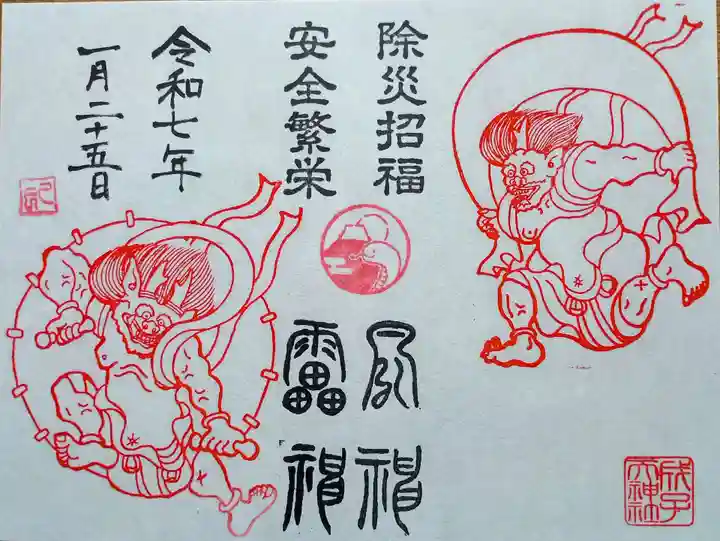 除災招福
安全繁栄
令和七年
一月二十五日
風神
雷神
成子天神社